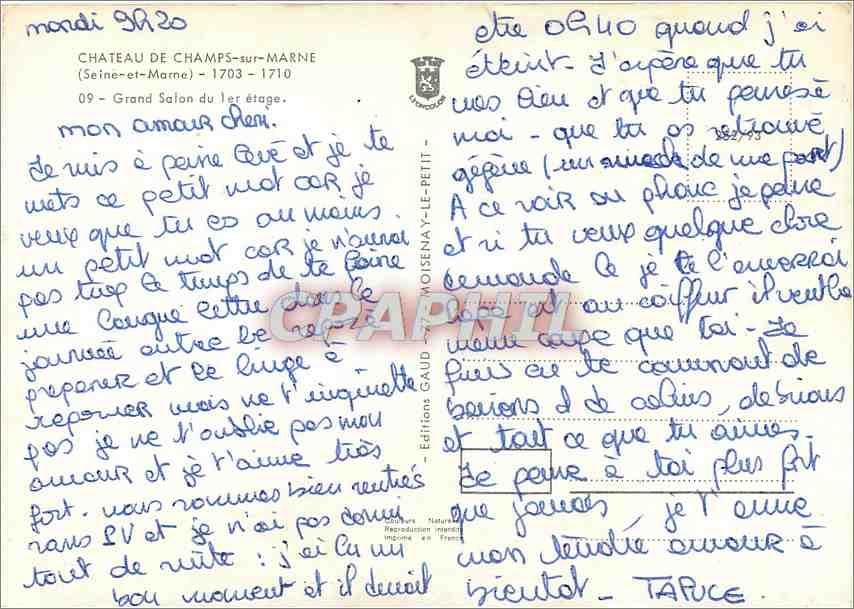 mardi 9h20
CHATEAU DE CHAMPS-sur-MARNE
(Seine-et-Marne) - 1703 - 1710
09 - Grand Salon du 1er étage.
LYONCOLOR
mon amour cheri.
Je suis à peine levé et je te
mets ce petit mot car je
veux que tu es au moins
un petit mot car je n'aurai
pas trop le temps de te faire
une longue lettre dans la
journée entre le repas à
preparer et le linge à
repasser mais ne t'inquiette
pas je ne t'oublie pas mon
amour et je t'aime très
fort. nous sommes bien rentrés
sans PV et je n'ai pas dormi
tout de suite : j'ai lu un
bon moment et il devait
etre 0h40 quand j'ai
éteint - J'espère que tu
vas bien et que tu penses à
moi - que tu as retrouvé
gégène (un de ma part)
A ce soir au phone je pense
et si tu veux quelque chose
demande le je te l'amerrai
papa est au coiffeur il veut la
meme coupe que toi - Je
finis en te couvrant de
baisers et de calins, de bisous
et tout ce que tu aimes.
Je pense à toi plus fort
que jamais, je t'aime
mon tendre amour à
bientot - TAPUCE.
- Editions GAUD - 77 MOISENAY-LE-PETIT -
Couleurs Naturelles
Reproduction interdite
Imprimé en France
552/93
CPAPHIL